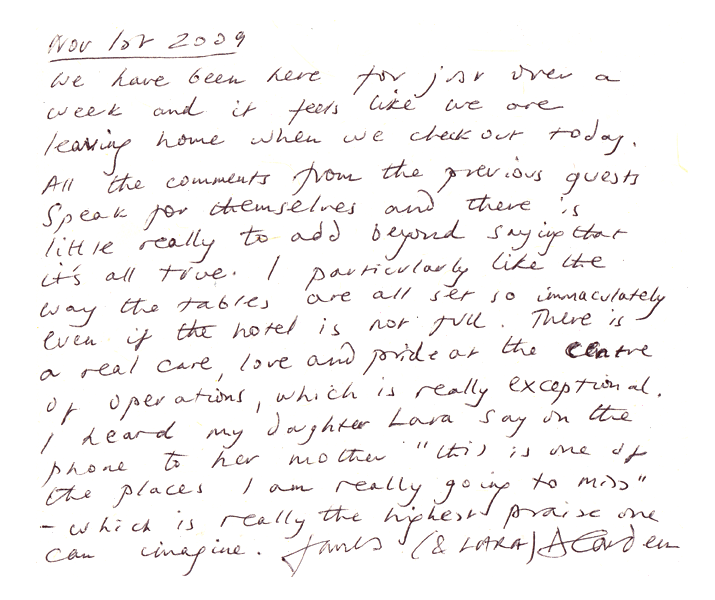 Nov 1st 2009
We have been here for just over a
week and it feels like we are
leaving home when we check out today.
All the comments from the previous guests
speak for themselves and there is
little really to add beyond saying that
it's all true. I particularly like the
way the tables are all set so immaculately
even if the hotel is not full. There is
a real care, love and pride at the centre
of operations, which is really exceptional.
I heard my daughter Lara say on the
phone to her mother "this is one of
the places I am really going to miss"
- which is really the highest praise one
can imagine. James (& LARA)